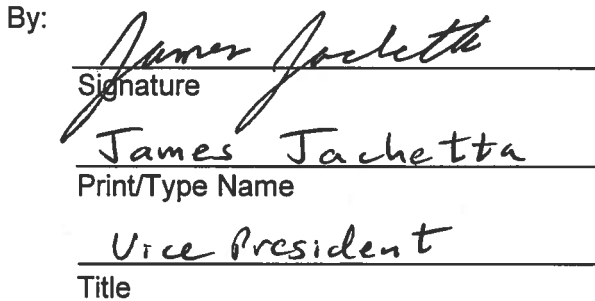 By: James Jachetta
Signature
James Jachetta
Print/Type Name
Vice President
Title